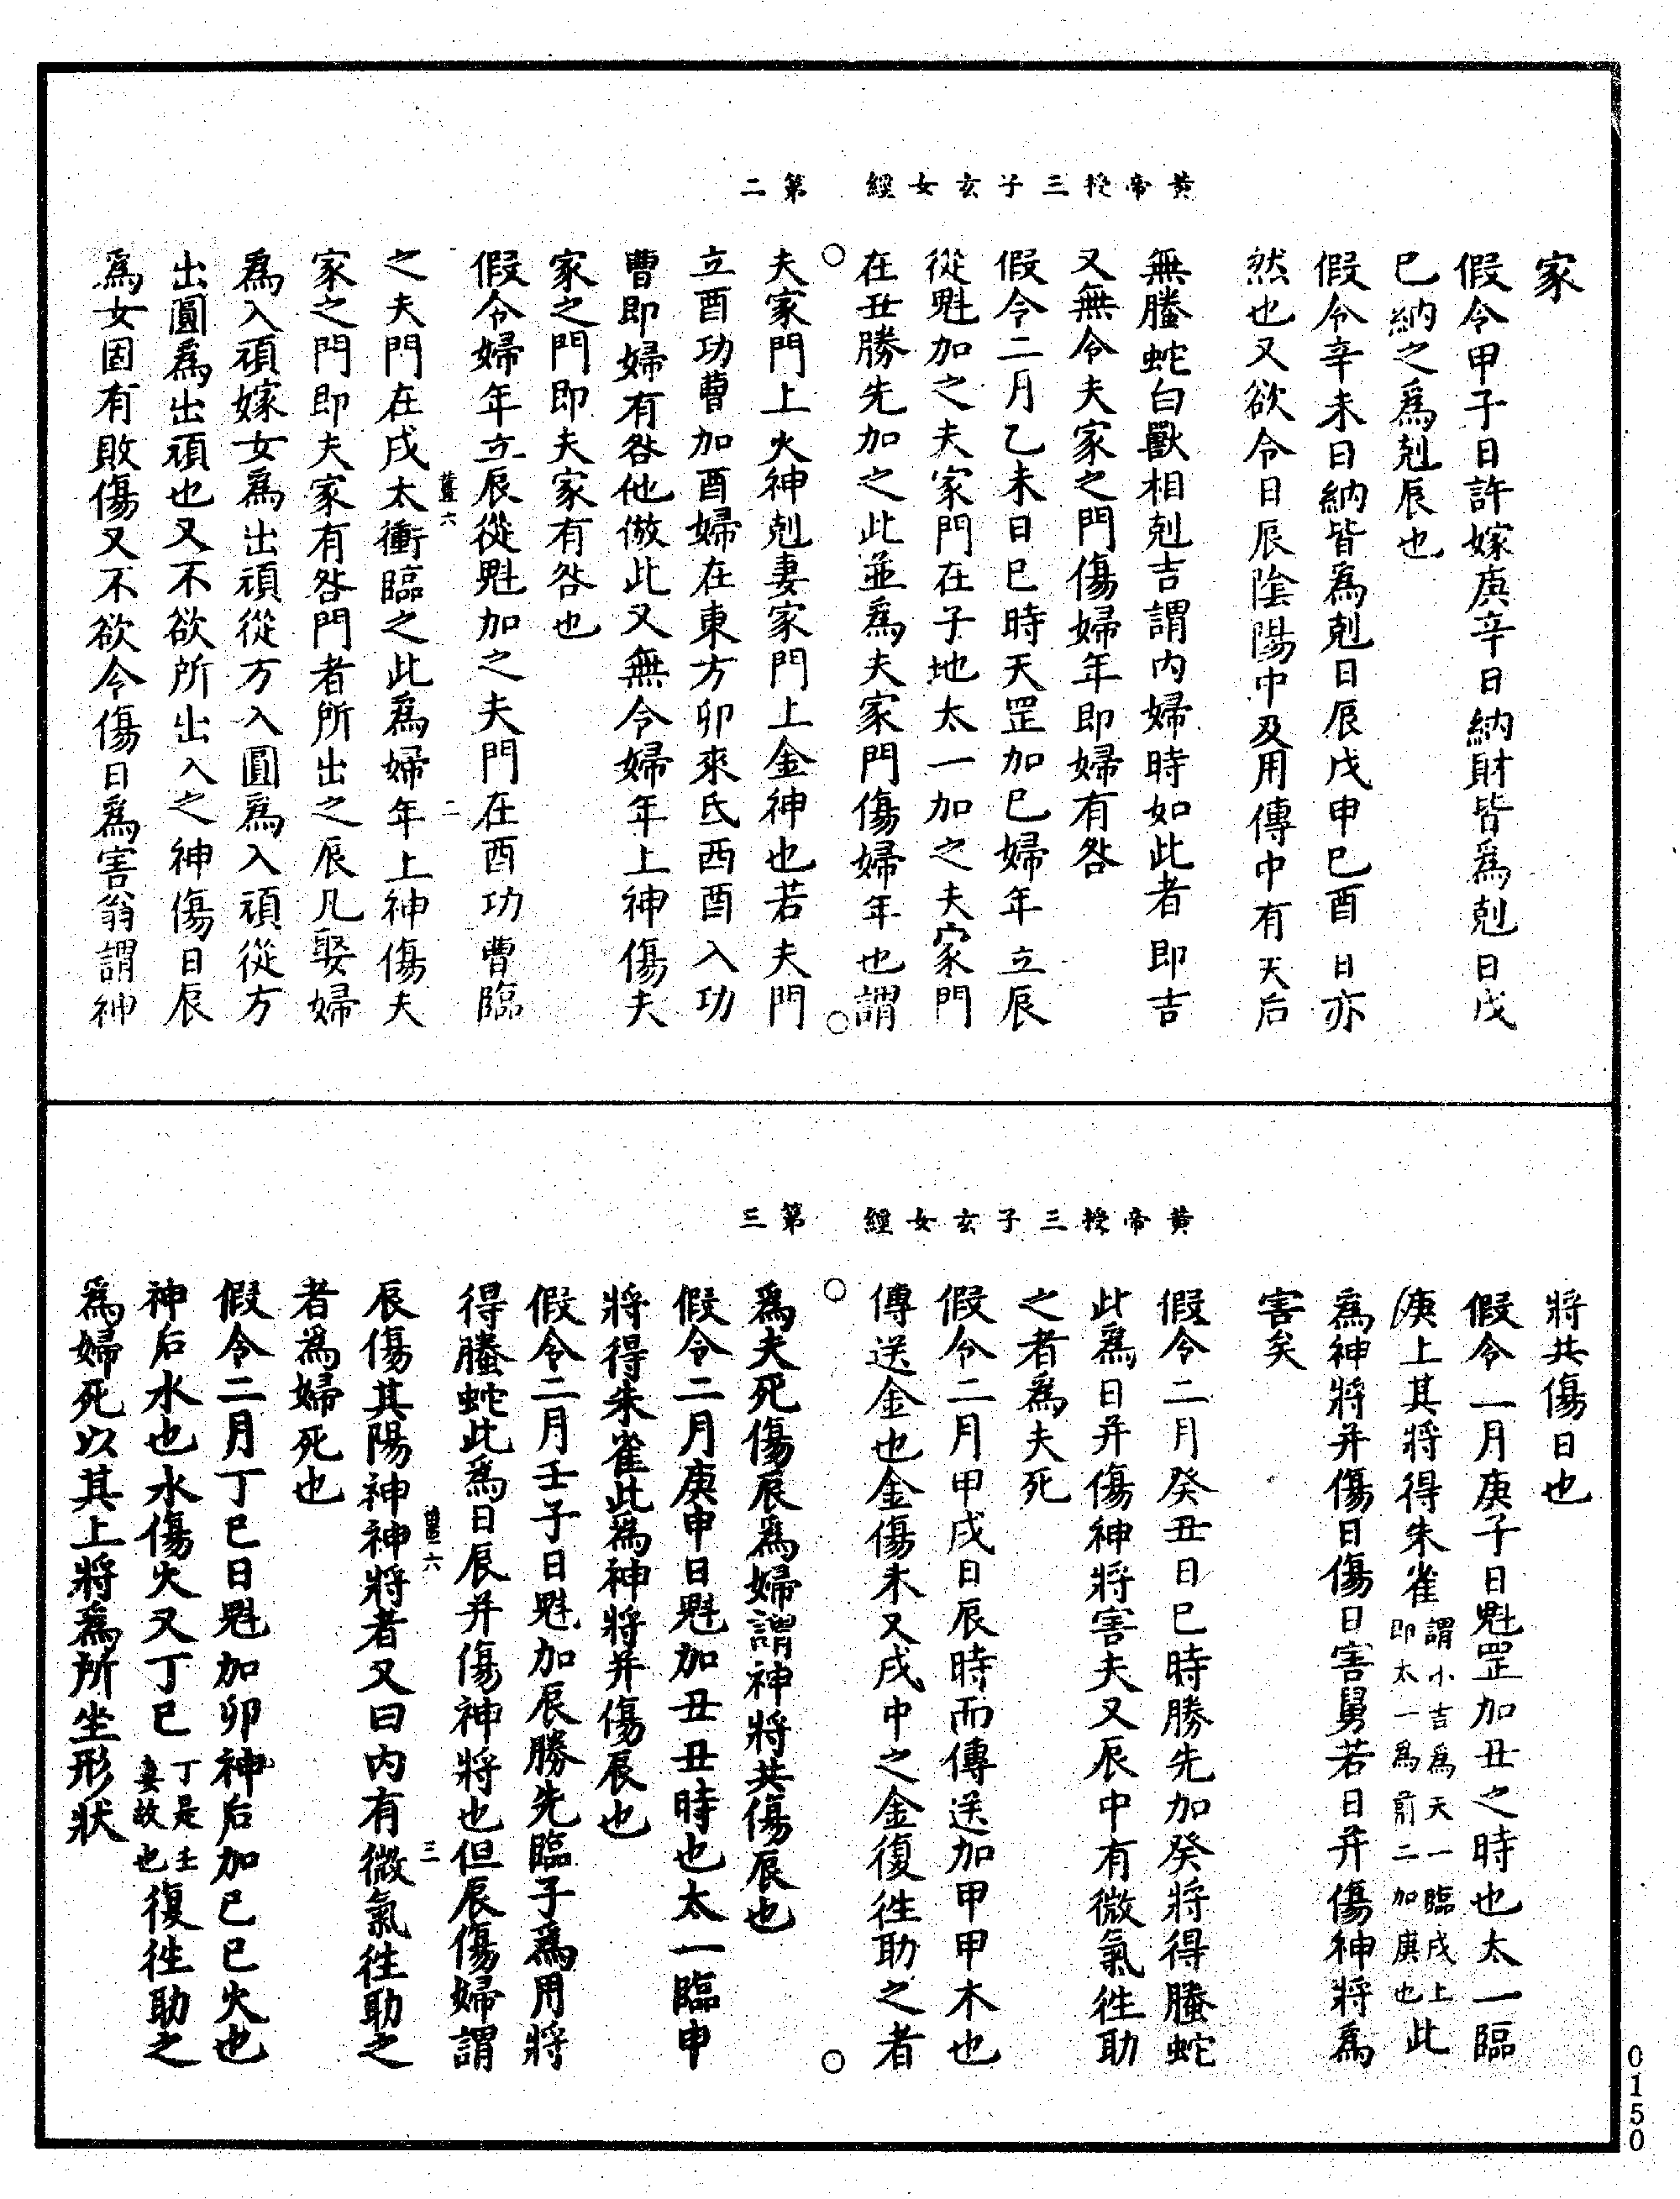 黃帝授三子玄女經　第二
家
假令甲子日許嫁庚辛日納財皆爲剋日戊
巳納之爲剋辰也
假令辛未日納皆爲剋日辰戊申巳酉日亦
然也又欲令日辰陰陽中及用傳中有天后
無螣蛇白獸相剋吉謂內婦時如此者即吉
又無令夫家之門傷婦年即婦有咎
假令二月乙未日巳時天罡加巳婦年立辰
從魁加之夫家門在子地太一加之夫家門
在丑勝先加之此並爲夫家門傷婦年也謂
夫家門上火神剋妻家門上金神也若夫門
立酉功曹加酉婦在東方卯來氏西酉入功
曹即婦有咎他倣此又無令婦年上神傷夫
家之門即夫家有咎也
假令婦年立辰從魁加之夫門在酉功曹臨
之夫門在戌太衝臨之此爲婦年上神傷夫
家之門即夫家有咎門者所出之辰凡娶婦
爲入頑嫁女爲出頑從万入圓爲入頑從方
出圓爲出頑也又不欲所出入之神傷日辰
爲女固有敗傷又不欲令傷日爲害翁謂神
黃帝授三子玄女經　第三
將共傷日也
假令一月庚子日魁罡加丑之時也太一臨
庚上其將得朱雀謂小吉爲天一臨戌上即太一爲前二加庚也此
爲神將并傷日傷日害舅若日并傷神將爲
害矣
假令二月癸丑日巳時勝先加癸將得螣蛇
此爲日并傷神將害夫又辰中有微氣徃助
之者爲夫死
假令二月甲戌日辰時而傳送加甲甲木也
傳送金也金傷木又戌中之金復徃助之者
爲夫死傷辰爲婦謂神將共傷辰也
假令二月庚申日魁加丑丑時也太一臨申
將得朱雀此爲神將并傷辰也
假令二月壬子日魁加辰勝先臨子爲用將
得螣蛇此爲日辰并傷神將也但辰傷婦謂
辰傷其陽神神將者又曰內有微氣徃助之
者爲婦死也
假令二月丁巳日魁加卯神后加巳巳火也
神后水也水傷火又丁巳丁是壬妻故也復徃助之
爲婦死以其上將爲所坐形狀
0150